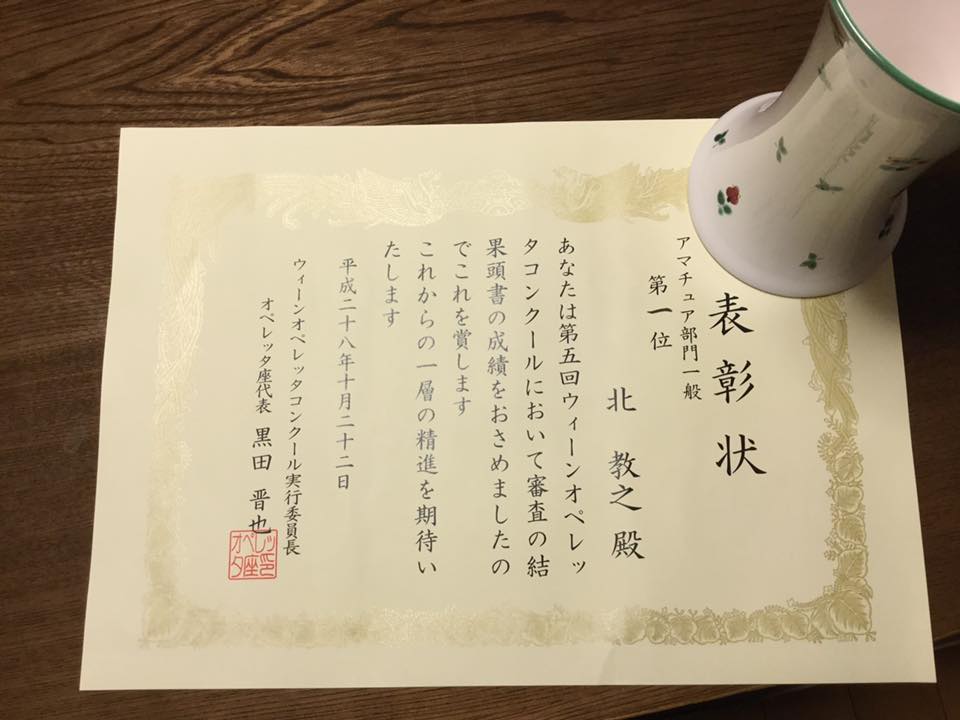 表彰状
アマチュア部門一般
第一位
北 教之 殿
あなたは第五回ウィーンオペレッ
タコンクールにおいて審査の結
果頭書の成績をおさめましたの
でこれを賞します
これからの一層の精進を期待い
たします
平成二十八年十月二十二日
ウィーンオペレッタコンクール実行委員長
オペレッタ座代表 黒田 晋也
オペレッタ座印